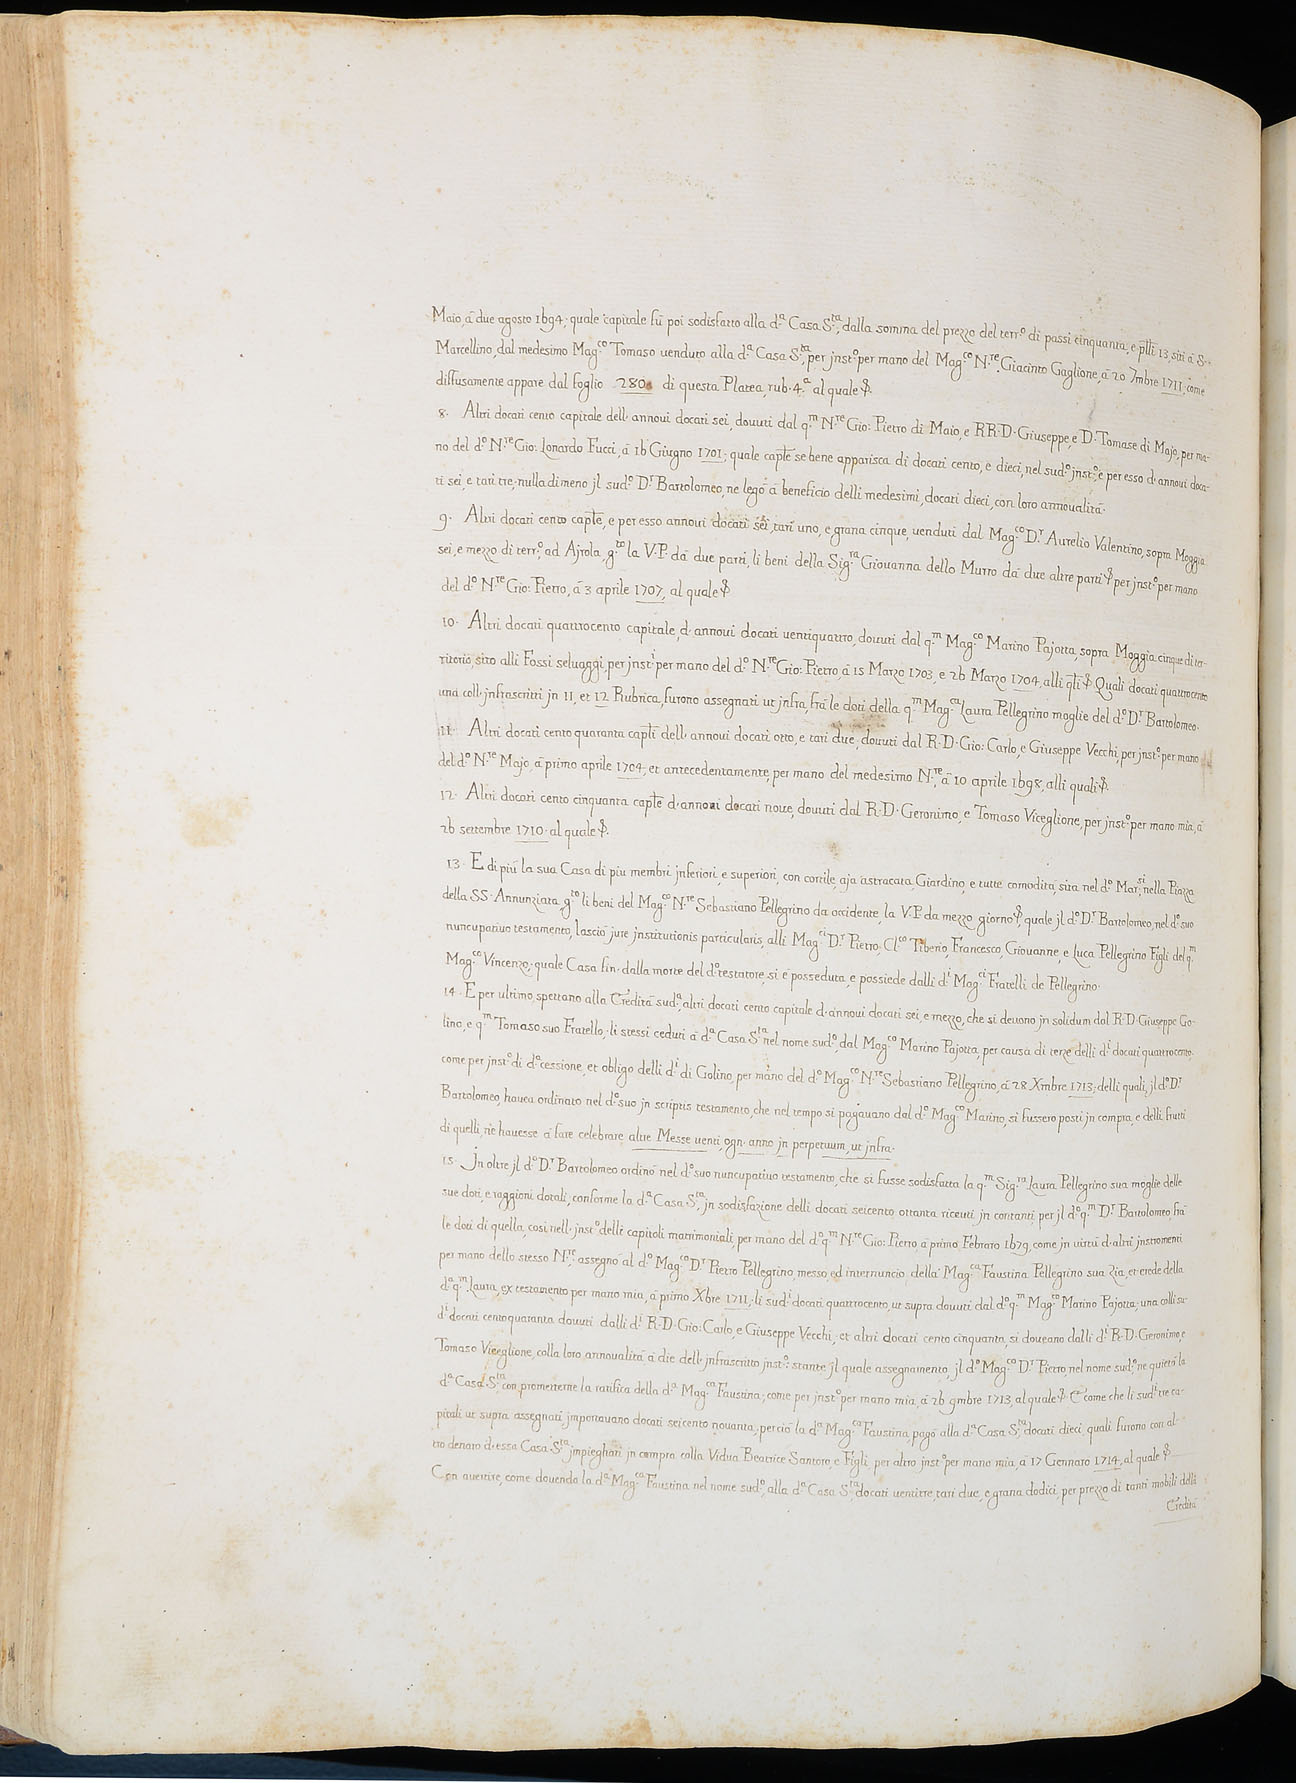 Maio, à due agosto 1694; quale capitale fù poi sodisfatto alla d.ª Casa S.ta, dalla somma del prezzo del terr.º di passi cinquanta, e plli 13, siti à S.
Marcellino, dal medesimo Mag.co Tomaso uenduto alla d.ª Casa S.ta, per jnst.º per mano del Mag.co N.re Giacinto Gaglione, à 20 7mbre 1711; come
diffusamente appare dal foglio 280 di questa Platea, rub. 4.ª al quale
8. Altri docati cento capitale dell' annoui docati sei, douuti dal q.m N.re Gio: Pietro di Maio, e RR. D. Giuseppe, e D. Tomase di Majo, per ma-
no del d.º N.re Gio: Lonardo Fucci, à 16 Giugno 1701; quale captle se bene apparisca di docati cento, e dieci, nel sud.º jnst.º, e per esso d'annoui doca-
ti sei, e tari tre; nulladimeno jl sud.º D.r Bartolomeo, ne legò à beneficio delli medesimi, docati dieci, con loro annoualità.
9. Altri docati cento captle, e per esso annoui docati sei, tarì uno, e grana cinque, uenduti dal Mag.co D.r Aurelio Valentino, sopra Moggia
sei, e mezzo di terr.º, ad Ajrola, g.to la V.P. dà due parti, li beni della Sig.ra Giouanna dello Murro dà due altre parti per jnst.º per mano
del d.º N.re Gio: Pietro, à 3 aprile 1707, al quale
10. Altri docati quattrocento capitale, d'annoui docati uentiquattro, douuti dal q.m Mag.co Marino Pajotta, sopra Moggia cinque di ter-
ritorio, sito alli Fossi seluaggi, per jnst.i per mano del d.º N.re Gio: Pietro, à 15 Marzo 1703, e 26 Marzo 1704, alli qlli Quali docati quattrocento
una coll' jnfrascritti jn 11, et 12 Rubrica, furono assegnati ut jnfra, frà le doti della q.m Mag.ca Laura Pellegrino moglie del d.º D.r Bartolomeo.
11. Altri docati cento quaranta captli dell' annoui docati otto, e tari due, douuti dal R. D. Gio: Carlo, e Giuseppe Vecchi, per jnst.º per mano
del d.º N.re Majo, à primo aprile 1704, et antecedentamente, per mano del medesimo N.re, à 10 aprile 1698, alli quali
12. Altri docati cento cinquanta captle d'annoui docati noue, douuti dal R. D. Geronimo, e Tomaso Viceglione, per jnst.º per mano mia, à
26 settembre 1710. al quale
13. E di più la sua Casa di piu membri jnferiori, e superiori, con cortile, aja astracata, Giardino, e tutte comodità, sita nel d.º Mar.si, nella Piazza
della SS. Annunziata, g.to li beni del Mag.co N.re Sebastiano Pellegrino da occidente, la V.P. da mezzo giorno, quale jl d.º D.r Bartolomeo, nel d.º suo
nuncupatiuo testamento, lasciò jure jnstitutionis particularis, alli Mag.ci D.r Pietro, Cl.co Tiberio, Francesco, Giouanne, e Luca Pellegrino Figli del q.m
Mag.co Vincenzo; quale Casa fin' dalla morte del d.º testatore, si e posseduta, e possiede dalli d.i Mag.ci Fratelli de Pellegrino.
14. E per ultimo, spettano alla Eredità sud.ª, altri docati cento capitale d'annoui docati sei, e mezzo, che si deuono jn solidum dal R. D. Giuseppe Go-
lino, e q.m Tomaso suo Fratello; li stessi ceduti à d.ª Casa S.ta nel nome sud.º, dal Mag.co Marino Pajotta, per causa di terze delli d.i docati quattrocento.
come per jnst.º di d.º cessione, et obligo delli d.i di Golino, per màno del d.º Mag.co N.re Sebastiano Pellegrino, à 28 Xmbre 1713; delli quali, jl d.º D.r
Bartolomeo, hauea ordinato nel d.º suo jn scriptis testamento, che nel tempo si pagàuano dal d.º Mag.co Marino, si fussero posti jn compra, e delli frutti
di quelli, ne hauesse à fare celebrare altre Messe uenti, ogn' anno jn perpetuum, ut jnfra.
15. Jn oltre jl d.º D.r Bartolomeo ordinò nel d.º suo nuncupatiuo testamento, che si fusse sodisfatta la q.m Sig.ra Laura Pellegrino sua moglie delle
sue doti, e raggioni dotali, conforme la d.ª Casa S.ta, jn sodisfazione delli docati seicento ottanta riceuti jn contanti, per jl d.º q.m D.r Bartolomeo, frà
le doti di quella, così nell' jnst.º delli capitoli matrimoniali, per mano del d.º q.m N.re Gio: Pietro, à primo Febraro 1679, come jn uirtù d'altri jnstromenti
per mano dello stesso N.re, assegnò al d.º Mag.co D.r Pietro Pellegrino, messo, ed internuncio della Mag.ca Faustina Pellegrino sua Zia, et erede della
d.ª q.m Laura, ex testamento per mano mia, à primo Xbre 1711, li sud.i docati quattrocento, ut supra douuti dal d.º q.m Mag.co Marino Pajotta; una colli su-
d.i docati centoquaranta douuti dalli d.i R. D. Gio: Carlo, e Giuseppe Vecchi, et altri docati cento cinquanta, si doueano dalli d.i R. D. Geronimo, e
Tomaso Viceglione, colla loro annoualità à die dell' jnfrascritto jnst.º: stante jl quale assegnamento, jl d.º Mag.co D.r Pietro, nel nome sud.º, ne quietò la
d.ª Casa S.ta, con promettere la ratifica della d.ª Mag.ca Faustina; come per jnst.º per mano mia, à 26 9mbre 1713, al quale E come che li sud.i tre ca-
pitali ut supra assegnati jmportauano docati seicento nouanta; perciò la d.ª Mag.ca Faustina, pagò alla d.ª Casa S.ta docati dieci, quali furono con al-
tro denaro d'essa Casa S.ta jmpieghati jn compra colla Vidua Beatrice Santoro, e Figli, per altro jnst.º per mano mia, à 17 Gennaro 1714, al quale
Con auertire, come douendo la d.ª Mag.ca Faustina nel nome sud.º, alla d.ª Casa S.ta, docati uentitre, tari due, e grana dodici, per prezzo di tanti mobili delli
Eredità